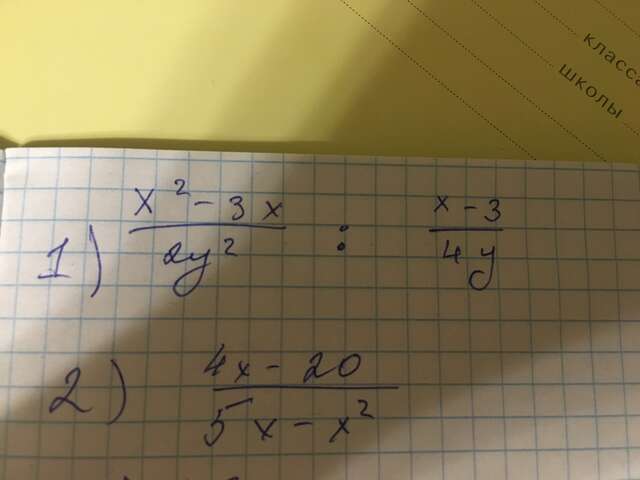 класса
школы
1) \frac{x^2 - 3x}{2y^2} : \frac{x - 3}{4y}
2) \frac{4x - 20}{5x - x^2}